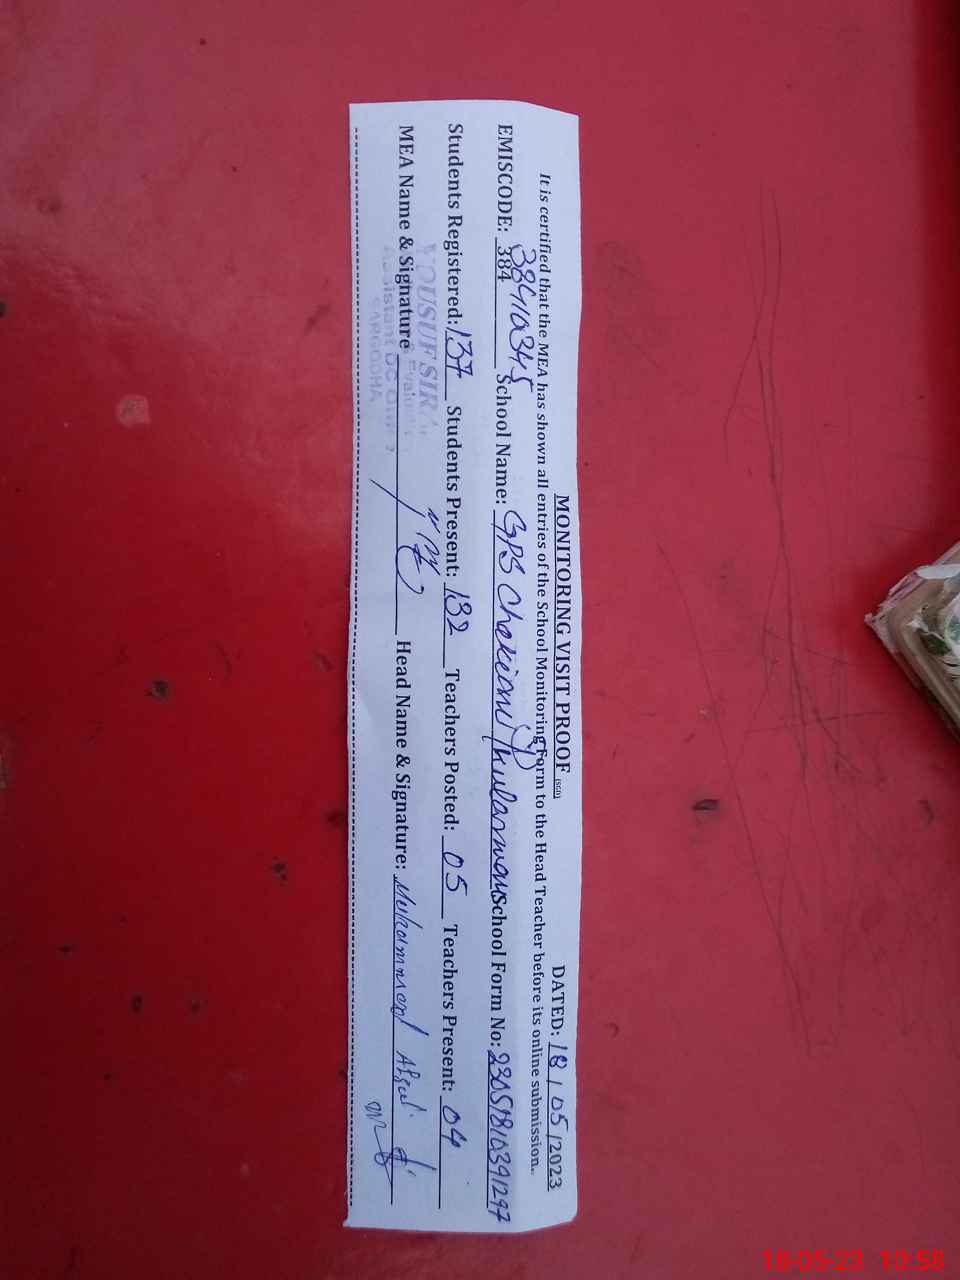 MONITORING VISIT PROOF (SGD) DATED: 18/05/2023
It is certified that the MEA has shown all entries of the School Monitoring Form to the Head Teacher before its online submission.
38410345
EMISCODE: 384 School Name: GPS Chak School Form No: 23051810391297
Students Registered: 137 Students Present: 132 Teachers Posted: 05 Teachers Present: 04
YOUSUF
MEA Name & Signature Head Name & Signature: Muhammad Afzal
Assistant
SARGODHA
18-05-23 10:58